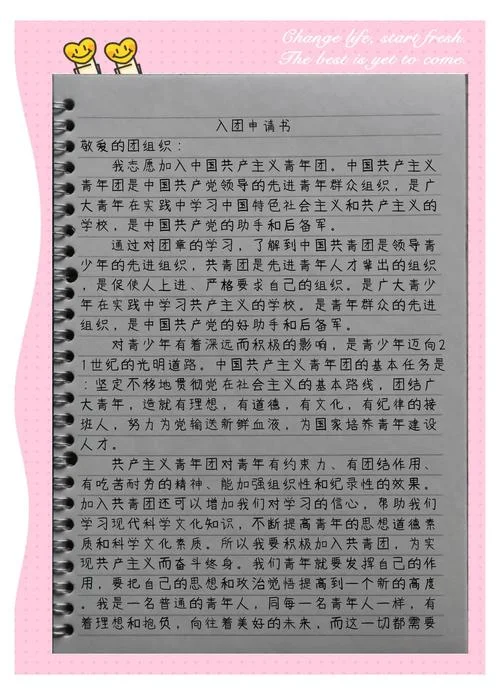 Change life, start fresh.
The best is yet to come.
入团申请书
敬爱的团组织：
我志愿加入中国共产主义青年团。中国共产主义
青年团是中国共产党领导的先进青年群众组织，是广
大青年在实践中学习中国特色社会主义和共产主义的
学校，是中国共产党的助手和后备军。
通过对团章的学习，了解到中国共青团是领导青
少年的先进组织，共青团是先进青年人才辈出的组织
，是促使人上进、严格要求自己的组织。是广大青少
年在实践中学习共产主义的学校。是青年群众的先进
组织，是中国共产党的好助手和后备军。
对青少年有着深远而积极的影响，是青少年迈向2
1世纪的光明道路。中国共产主义青年团的基本任务是
：坚定不移地贯彻党在社会主义的基本路线，团结广
大青年，造就有理想，有道德，有文化，有纪律的接
班人，努力为党输送新鲜血液，为国家培养青年建设
人才。
共产主义青年团对青年有约束力、有团结作用、
有吃苦耐劳的精神、能加强组织性和纪录性的效果。
加入共青团还可以增加我们对学习的信心，帮助我们
学习现代科学文化知识，不断提高青年的思想道德素
质和科学文化素质。所以我要积极加入共青团，为实
现共产主义而奋斗终身。我们青年就要发挥自己的作
用，要把自己的思想和政治觉悟提高到一个新的高度
。我是一名普通的青年人，同每一名青年人一样，有
着理想和抱负，向往着美好的未来，而这一切都需要